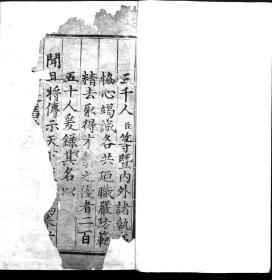 三千人臣等暨內外諸執
協心竭誠各共厥職嚴防範
精去取得才 之優者二百
五十人爰錄其名以
聞且將傳示天